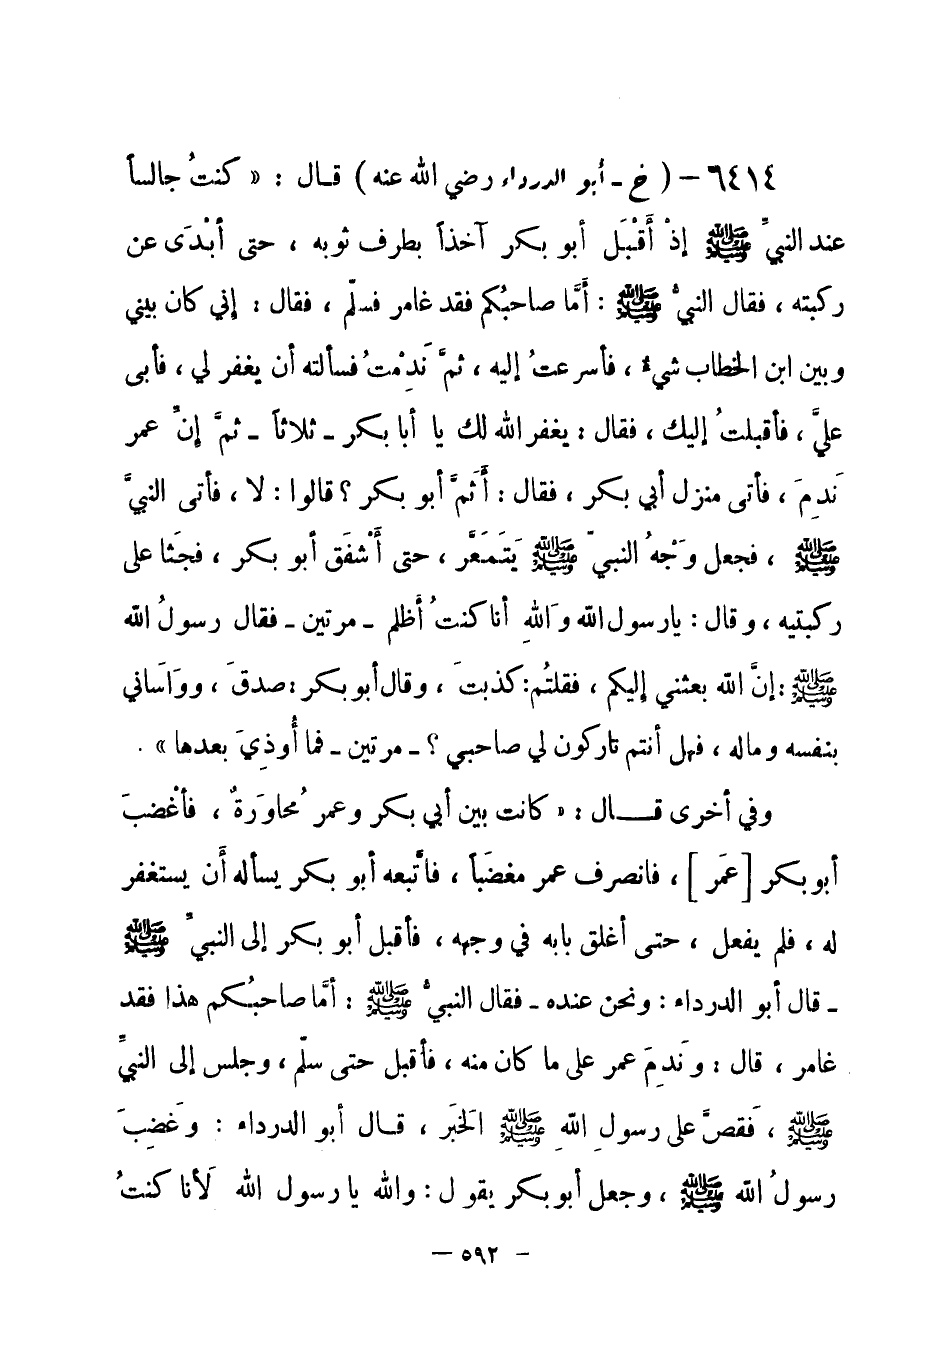 ٦٤١٤ – ( خ - أبو الدرداء رضي الله عنه ) قـال : « كنتُ جالساً
عند النبيِّ ﷺ إذْ أَقْبَلَ أبو بكر آخذاً بطرف ثوبه ، حتى أبْدَى عن
ركبته ، فقال النبيُّ ﷺ : أمَّا صاحبُكم فقد غامر فسلّم ، فقال : إني كان بيني
وبين ابن الخطاب شيءٌ ، فأسرعتُ إليه ، ثمَّ نَدِمْتُ فسألته أن يغفر لي ، فأبى
عليَّ ، فأقبلتُ إليك ، فقال : يغفر الله لك يا أبا بكر ـ ثلاثاً ـ ثمَّ إنَّ عمر
نَدِمَ ، فأتى منزل أبي بكر ، فقال : أَثمَّ أبو بكر ؟ قالوا : لا ، فأتى النبيَّ
ﷺ ، فجعل وَجْهُ النبيّ ﷺ يَتَمَعَّر ، حتى أَشْفَق أبو بكر ، فجَثا على
ركبتيه ، وقال : يارسول الله وَاللهِ أنا كنتُ أَظلم ـ مرتين ـ فقال رسولُ الله
ﷺ : إنَّ الله بعثني إليكم ، فقلتُم : كذبتَ ، وقال أبو بكر : صدقَ ، ووَاسَاني
بنفسه وماله ، فهل أنتم تاركون لي صاحبي ؟ ـ مرتين ـ فما أُوذِيَ بعدها » .
وفي أخرى قـــال : « كانت بين أبي بكر وعمر مُحاوَرَةٌ ، فأغْضبَ
أبو بكر [ عمَر ] ، فانصرف عمر مغضَباً ، فاتَّبعه أبو بكر يسأله أَن يستغفر
له ، فلم يفعل ، حتى أغلق بابه في وجهه ، فأقبل أبو بكر إلى النبيِّ ﷺ
ـ قال أبو الدرداء : ونحن عنده ـ فقال النبيُّ ﷺ : أمَّا صاحبُكم هذا فقد
غامر ، قال : ونَدِمَ عمر على ما كان منه ، فأقبل حتى سلّم ، وجلس إلى النبيِّ
ﷺ ، فَقصَّ على رسولِ اللهِ ﷺ الخَبَر ، قـال أبو الدرداء : وغَضِبَ
رسولُ الله ﷺ ، وجعل أبو بكر يقول : والله يا رسول الله لَأنا كنتُ
– ٥٩٢ –